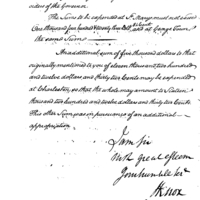 orders of the Governor.
The Sum to be expended at St Marys must not exceed
One thousand four hundred Seventy two Dollars, and at George Town
the same Sum
An additional sum of five thousand dollars to that
originally mentioned to you of eleven thousand two hundred
and twelve dollars and thirty two Cents may be expended
at Charleston, so that the whole may amount to Sixteen
thousand two hundred and twelve dollars and thirty two Cents.
This latter Sum was in pursuance of an additional
appropriation,
I am Sir
With great esteem
Your humble Sert
HKnox